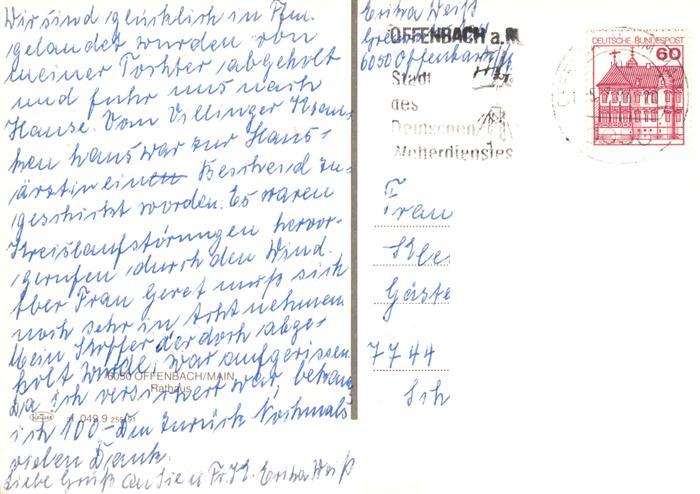 Wir sind glücklich in Ffm.
gelandet wurden von
meiner Tochter abgeholt
und fuhr uns nach
Hause. Vom Villinger Kran-
ken haus war zur Haus-
ärztin ein Bescheid zu-
geschickt worden. Es waren
Kreislaufstörungen hervor-
gerufen durch den Wind.
Aber Frau Geret muß sich
noch sehr in Acht nehmen.
Mein Koffer der dort abge-
holt wurde, war aufgerissen.
Da ich versichert war, bekam
ich 100- DM zurück. Nochmals
vielen Dank.
Liebe Grüß an Sie u. Fr. K. Erika Weiß
6050 OFFENBACH/MAIN
Rathaus
049.9
Erika Weiß
6050 Offenbach
OFFENBACH a.M
Stadt
des
Deutschen
Wetterdienstes
DEUTSCHE BUNDESPOST
60
Frau
Kle
Gäste
7744